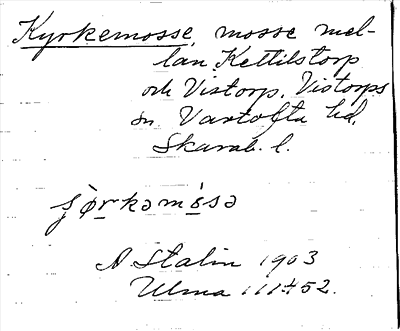 Kyrkemosse, mosse mel-
lan Kettilstorp
och Vistorp, Vistorps
sn. Vartofta hd,
Skarab. l.
A Stalin 1903
Ulma 111:452.